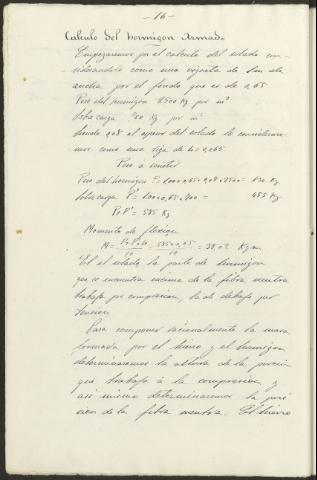 - 16 -
Calculo del hormigon Armado
Empezaremos por el calculo del estado con-
siderandolo como una vigueta de 1 m de
ancha por el fondo que es de 0,65
Peso del hormigon 2500 Kg por m³
Sobre carga 700 Kg por m²
Siendo 0,08 el espesor del estado le considerare-
mos como una viga de 1 = 0,65
Peso a resistir
Peso del hormigon P = 1,00 x 0,65 x 0,08 x 2500 = 130 Kg.
Sobrecarga P' = 1,00 x 0,65 x 700 = 455 Kg
P + P' = 585 Kg
Momento de flexion
M = = 585 x 0,65 / 10 = 38,02 Kg m
En el estado la parte de hormigon
que se encuentra encima de la fibra neutra
trabaja por compresion, la de debajo por
tension
Para componer racionalmente la masa
formada por el hierro y el hormigon
determinaremos la altura de la porcion
que trabaja á la compresion y
asi mismo determinaremos la posi
cion de la fibra neutra. El hierro